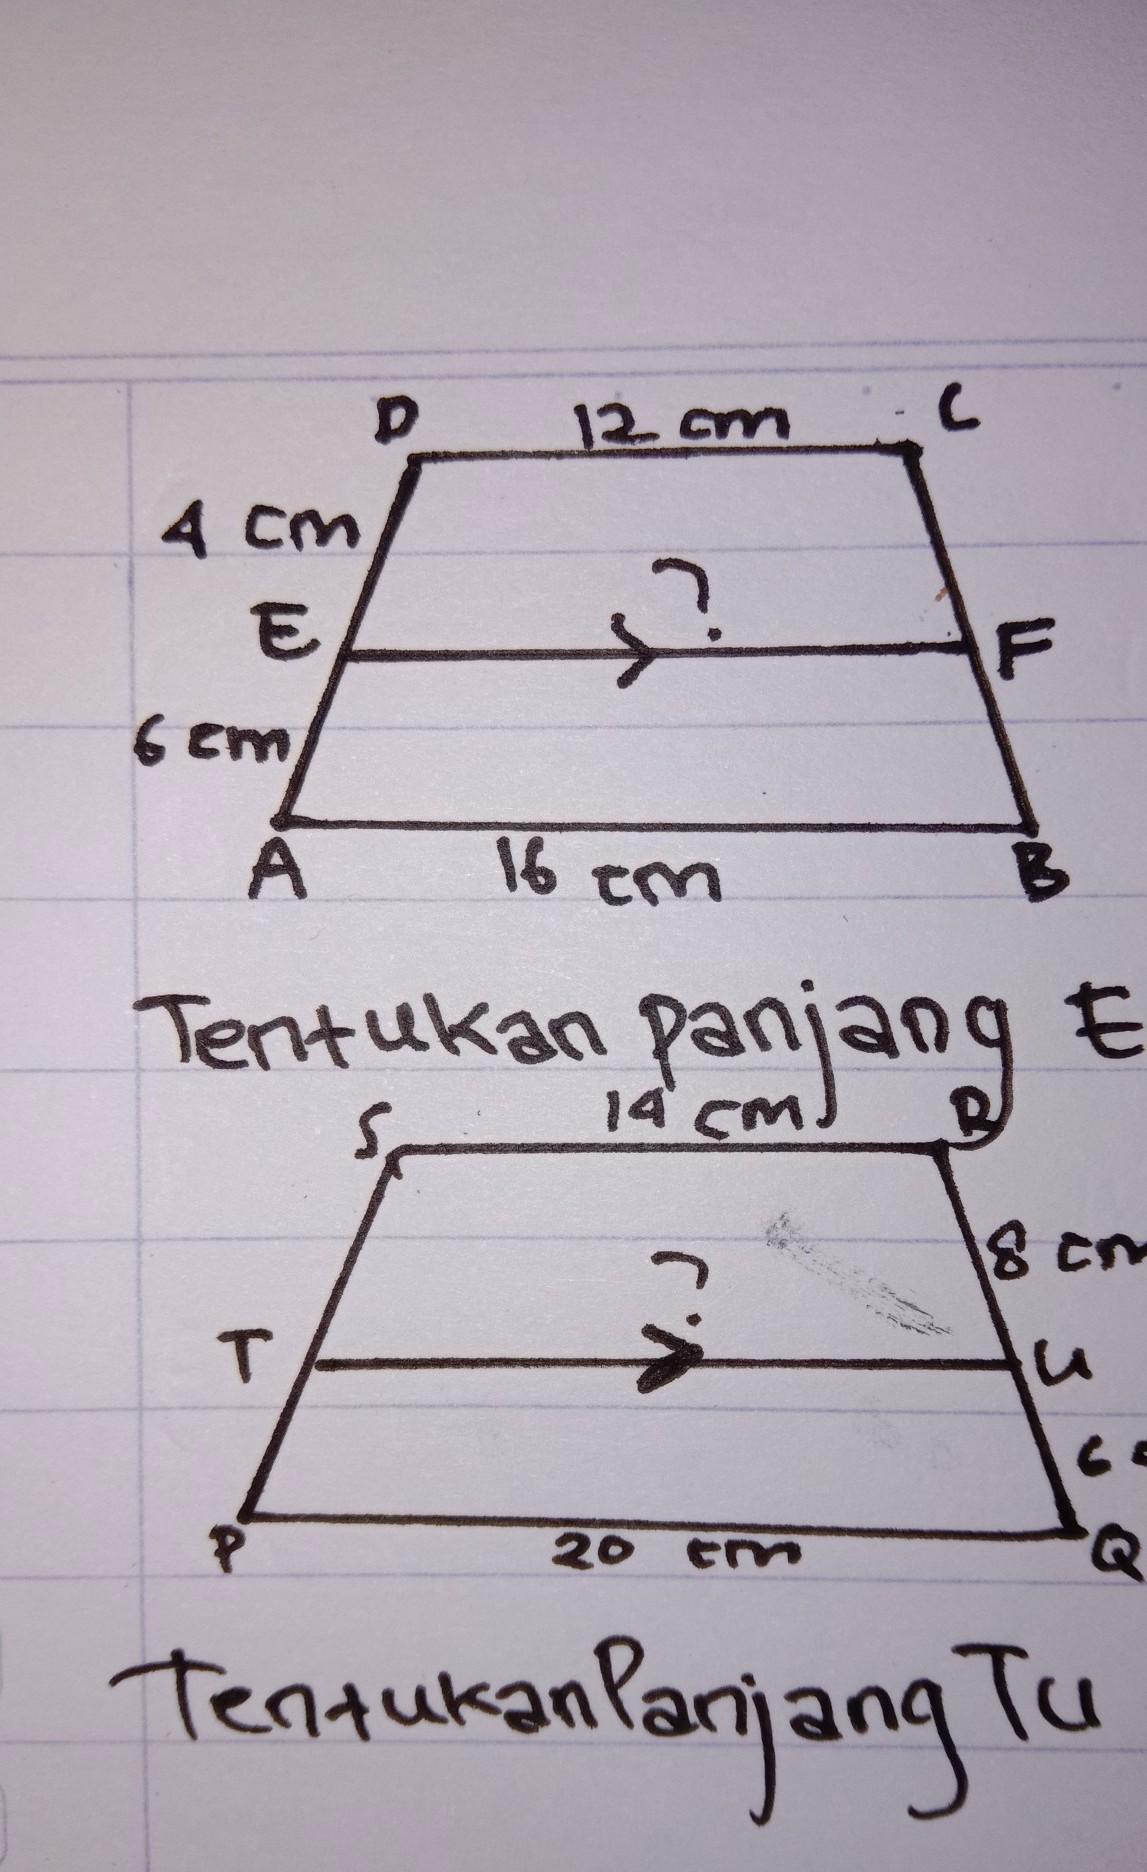 D 12 cm C
4 cm
?
E F
6 cm
A 16 cm B
Tentukan panjang E
S 14 cm R
8 cm
?
T U
6
P 20 cm Q
Tentukan Panjang TU